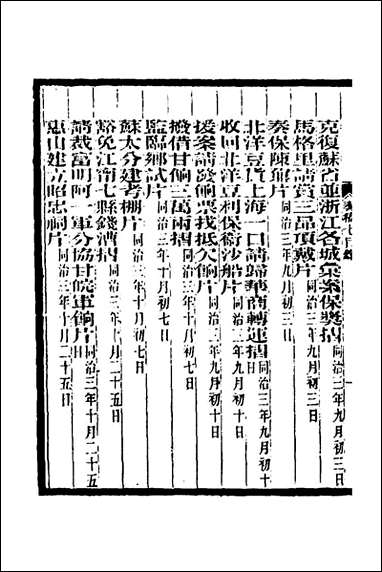 奏稿七目錄
克復蘇省並浙江各城彙案保獎摺同治三年九月初三日
馬格里請賞三品頂戴片同治三年九月初三日
奏保陳鼐片同治三年九月初三日
北洋豆貨上海一口請歸華商轉運摺同治三年九月初十日
收回北洋豆利保衛沙船片同治三年九月初十日
援案請發餉票找抵欠餉片同治三年九月初十日
撥借甘餉三萬兩摺同治三年十月初七日
監臨鄉試片同治三年十月初七日
蘇太分建考棚片同治三年十月初七日
豁免江甯七縣錢漕摺同治三年十月二十五日
請裁富明阿一軍分協甘皖軍餉片同治三年十月二十五日
惠山建立昭忠祠片同治三年十月二十五日